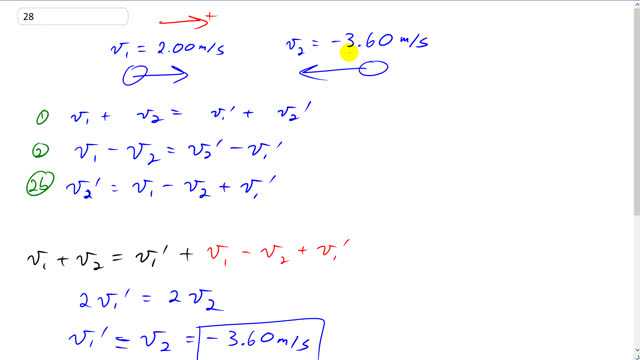 28
+
v₁ = 2.00 m/s
v₂ = -3.60 m/s
① v₁ + v₂ = v₁' + v₂'
② v₁ - v₂ = v₂' - v₁'
2b v₂' = v₁ - v₂ + v₁'
v₁ + v₂ = v₁' + v₁ - v₂ + v₁'
2v₁' = 2v₂
v₁' = v₂ = -3.60 m/s